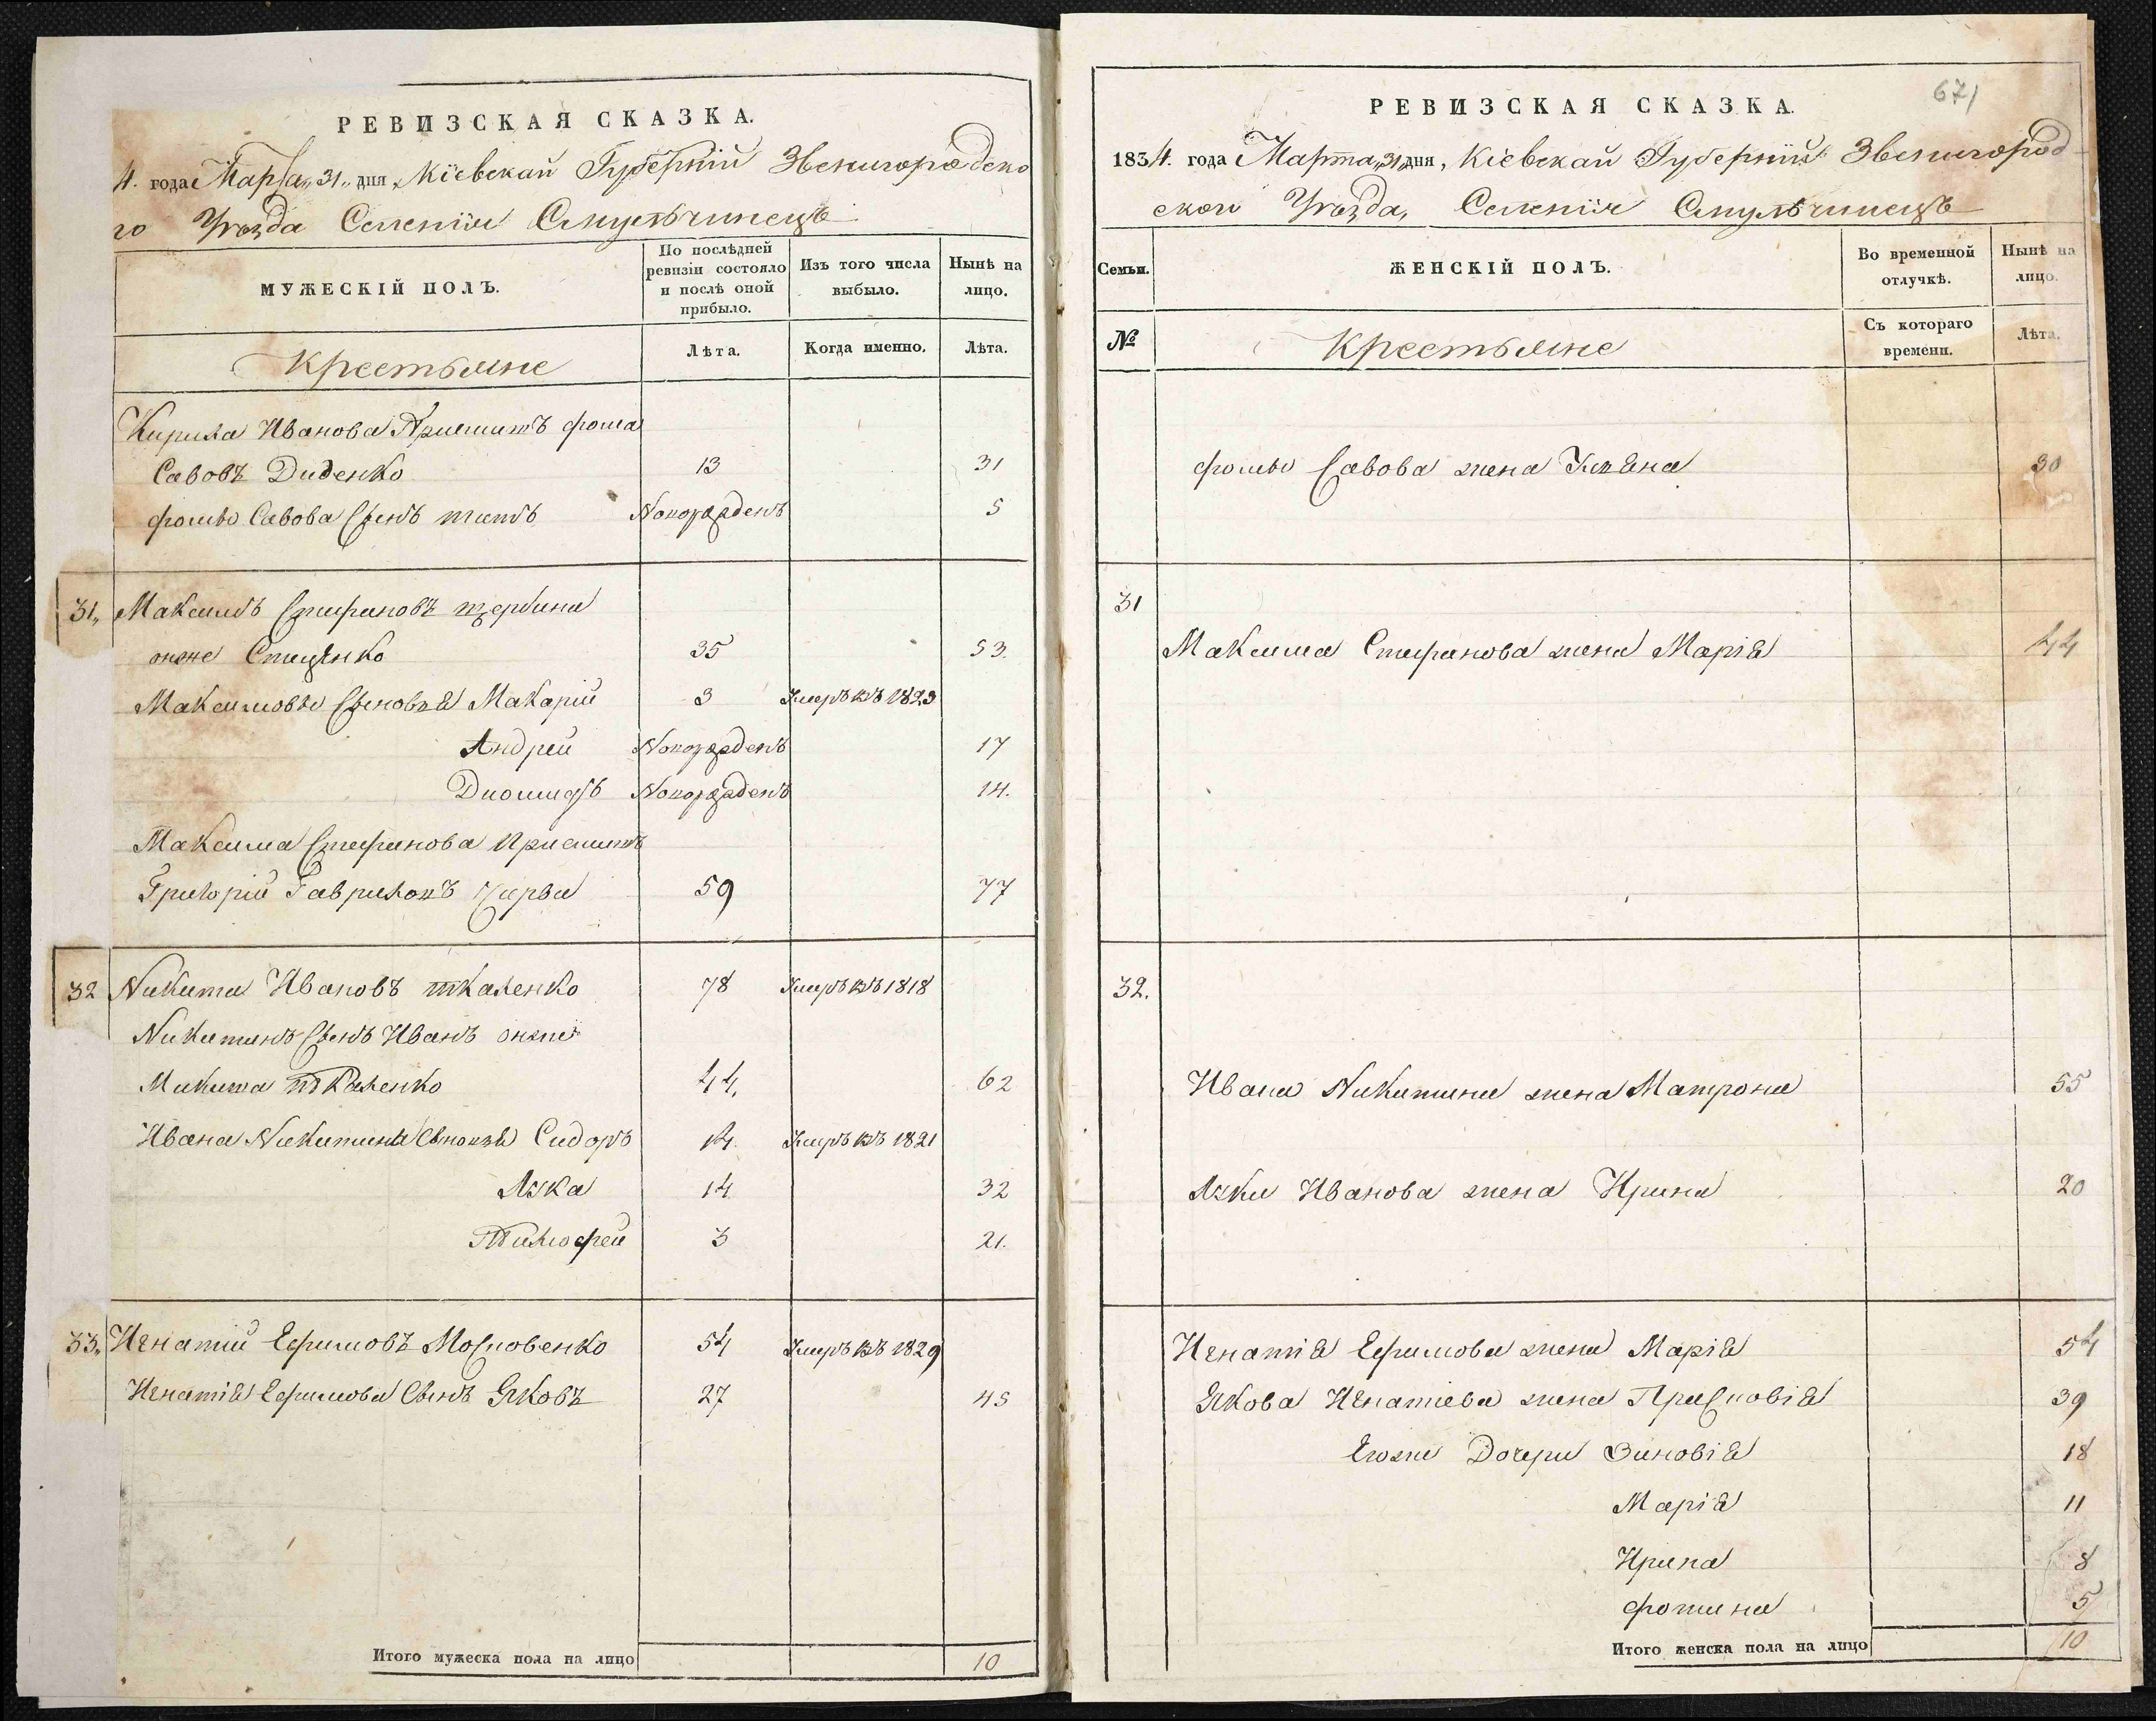 РЕВИЗСКАЯ СКАЗКА.
4. года Марта „31„ дня, Кіевской Губерніи Звенигородско
го Уѣзда Селенія Смульчинецъ
МУЖЕСКІЙ ПОЛЪ.
По послѣдней ревизіи состояло и послѣ оной прибыло.
Изъ того числа выбыло.
Нынѣ на лицо.
Крестьяне
Лѣта.
Когда именно.
Лѣта.
Кирила Иванова Приемытъ фома
Савовъ Диденко 13 31
фомы Савова Сынъ титъ Новорожденъ 5
31„ Максимъ Стифановъ щербина
онже Стиценко 35 53.
Максимовы Сыновья Макарій 3 Умеръ въ 1823
Андрей Новорожденъ 17
Диомидъ Новорожденъ 14.
Максима Стифанова Приемытъ
Григорій Гавриловъ 59 77
32 Никита Ивановъ ткаленко 78 Умеръ въ 1818
Никитинъ Сынъ Иванъ онже
Микита ткаленко 44, 62
Ивана Никитина Сыновья Сидоръ Умеръ въ 1821
Лука 14 32
Тимофей 3 21.
33„ Игнатій Ефимовъ Мосповенко 54 Умеръ въ 1829
Игнатія Ефимова Сынъ Яковъ 27 45
Итого мужеска пола на лицо 10
671
РЕВИЗСКАЯ СКАЗКА.
1834. года Марта „31„ дня, Кіевской Губерніи Звенигород
ской Уѣзда, Селенія Смульчинецъ
Семьи.
ЖЕНСКІЙ ПОЛЪ.
Во временной отлучкѣ.
Нынѣ на лицо.
№
Крестьяне
Съ котораго времени.
Лѣта.
фомы Савова жена Ульяна 30
31
Максима Стифанова жена Марія 44
32.
Ивана Никитина жена Матрона 55
Луки Иванова жена Ирина 20
Игнатія Ефимова жена Марія 54
Якова Игнатіева жена Присповія 39
Егоже Дочери Зиновія 18
Марія 11
Ирина 8
фотина 5
Итого женска пола на лицо 10